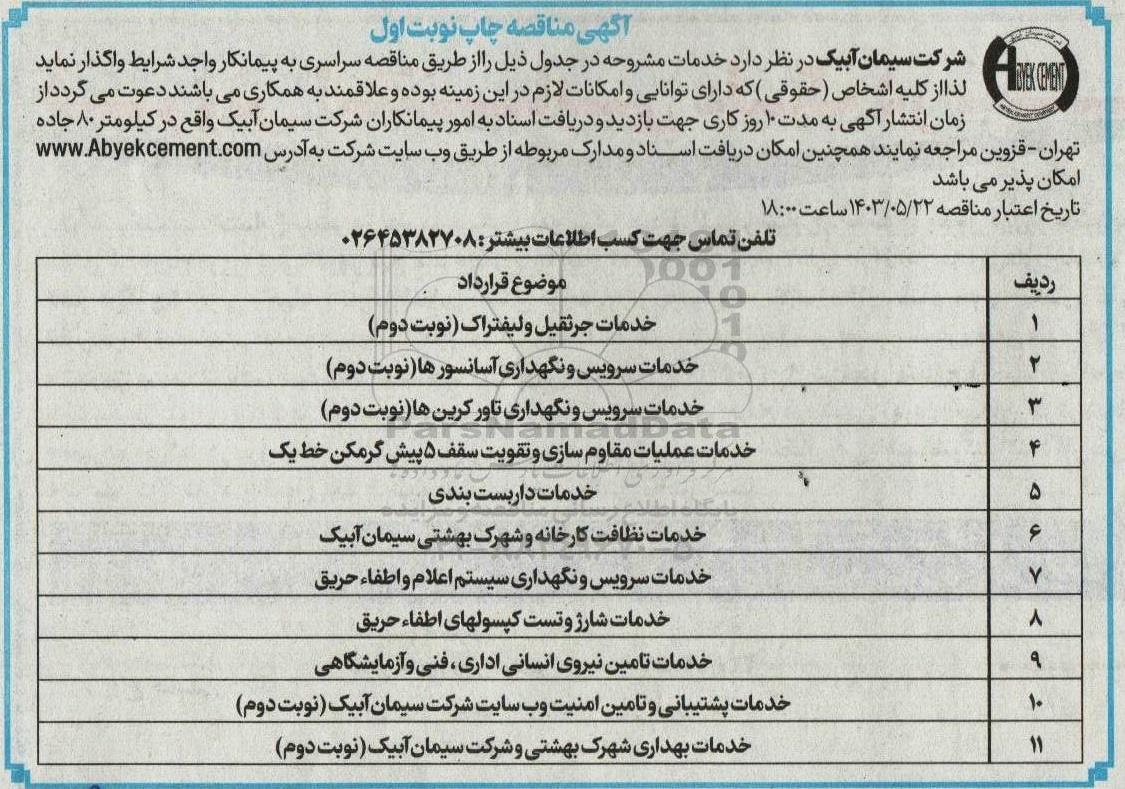 آگهی مناقصه چاپ نوبت اول
شرکت سیمان آبیک در نظر دارد خدمات مشروحه در جدول ذیل را از طریق مناقصه سراسری به پیمانکار واجد شرایط واگذار نماید
لذا از کلیه اشخاص (حقوقی) که دارای توانایی و امکانات لازم در این زمینه بوده و علاقمند به همکاری می باشند دعوت می گردد از
زمان انتشار آگهی به مدت ۱۰ روز کاری جهت بازدید و دریافت اسناد به امور پیمانکاران شرکت سیمان آبیک واقع در کیلومتر ۸۰ جاده
تهران - قزوین مراجعه نمایند همچنین امکان دریافت اسناد و مدارک مربوطه از طریق وب سایت شرکت به آدرس www.Abyekcement.com
امکان پذیر می باشد
تاریخ اعتبار مناقصه ۱۴۰۳/۰۵/۲۲ ساعت ۱۸:۰۰
تلفن تماس جهت کسب اطلاعات بیشتر : ۰۲۶۴۵۳۸۲۷۰۸
ردیف موضوع قرارداد
۱ خدمات جرثقیل و لیفتراک (نوبت دوم)
۲ خدمات سرویس و نگهداری آسانسور ها (نوبت دوم)
۳ خدمات سرویس و نگهداری تاور کرین ها (نوبت دوم)
۴ خدمات عملیات مقاوم سازی و تقویت سقف ۵ پیش گرمکن خط یک
۵ خدمات داربست بندی
۶ خدمات نظافت کارخانه و شهرک بهشتی سیمان آبیک
۷ خدمات سرویس و نگهداری سیستم اعلام و اطفاء حریق
۸ خدمات شارژ و تست کپسولهای اطفاء حریق
۹ خدمات تامین نیروی انسانی اداری ، فنی و آزمایشگاهی
۱۰ خدمات پشتیبانی و تامین امنیت وب سایت شرکت سیمان آبیک (نوبت دوم)
۱۱ خدمات بهداری شهرک بهشتی و شرکت سیمان آبیک (نوبت دوم)
ABYEK CEMENT
ParsNamadData
پایگاه اطلاع رسانی مناقصه و مزایده